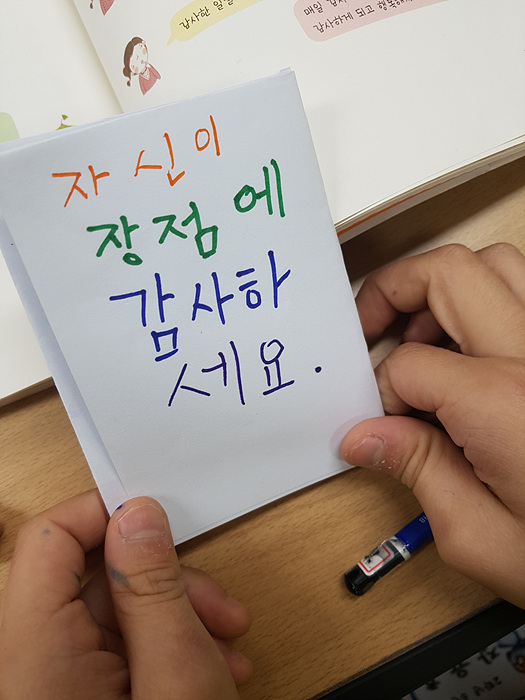 감사한 일을
매일 감사
감사하게 되고 행복해
자신이
장점에
감사하
세요.